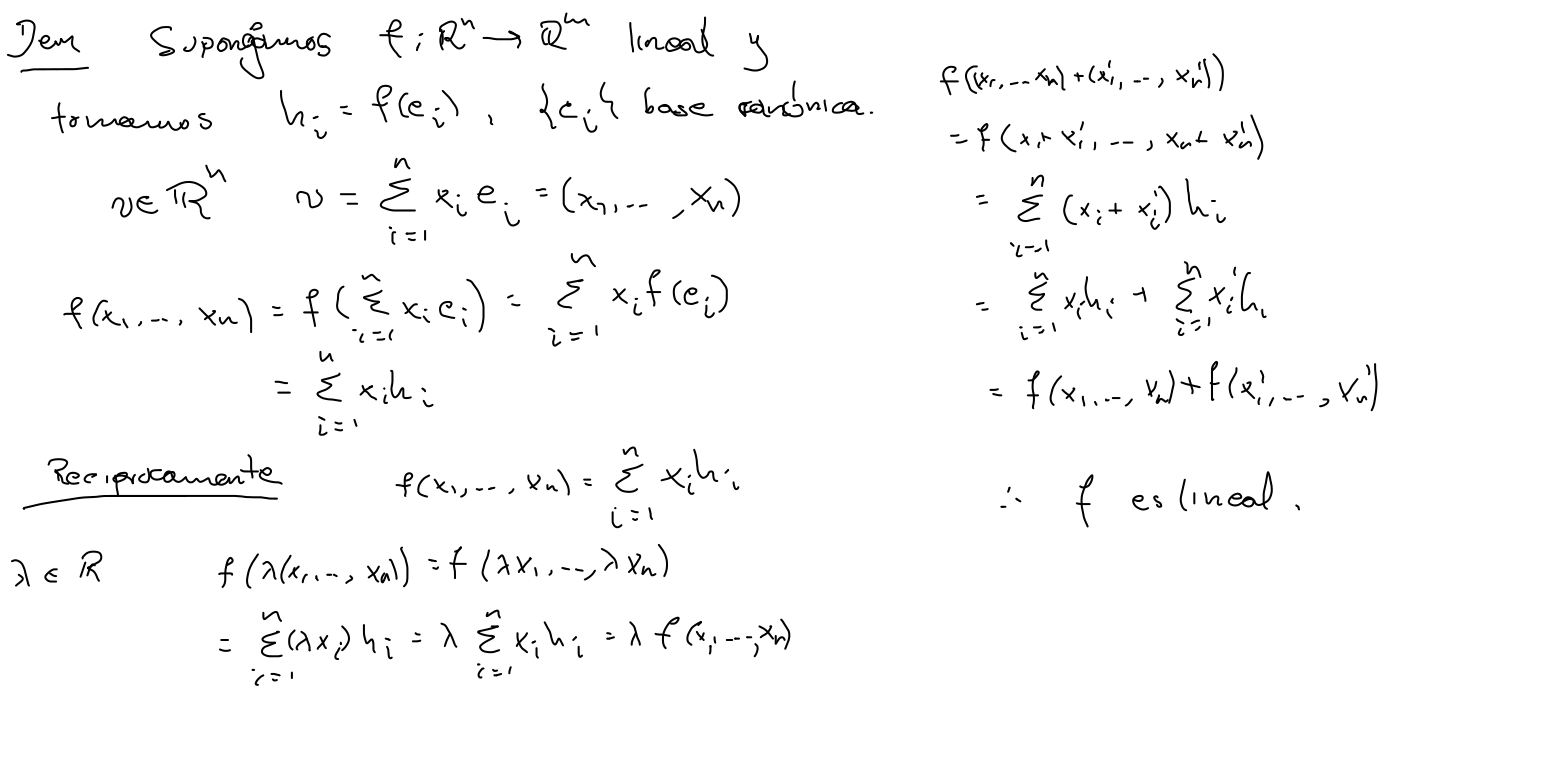 Dem Supongamos f : ℝⁿ → ℝᵐ lineal y
tomamos hᵢ = f(eᵢ), {eᵢ} base canónica.
v ∈ ℝⁿ v = ∑_{i=1}^{n} xᵢ eᵢ = (x₁, ..., xₙ)
f(x₁, ..., xₙ) = f(∑_{i=1}^{n} xᵢ eᵢ) = ∑_{i=1}^{n} xᵢ f(eᵢ)
= ∑_{i=1}^{n} xᵢ hᵢ
Reciprocamente f(x₁, ..., xₙ) = ∑_{i=1}^{n} xᵢ hᵢ
λ ∈ ℝ f(λ(x₁, ..., xₙ)) = f(λx₁, ..., λxₙ)
= ∑_{i=1}^{n} (λxᵢ) hᵢ = λ ∑_{i=1}^{n} xᵢ hᵢ = λ f(x₁, ..., xₙ)
f((x₁, ..., xₙ) + (x₁', ..., xₙ'))
= f(x₁ + x₁', ..., xₙ + xₙ')
= ∑_{i=1}^{n} (xᵢ + xᵢ') hᵢ
= ∑_{i=1}^{n} xᵢ hᵢ + ∑_{i=1}^{n} xᵢ' hᵢ
= f(x₁, ..., xₙ) + f(x₁', ..., xₙ')
∴ f es lineal.